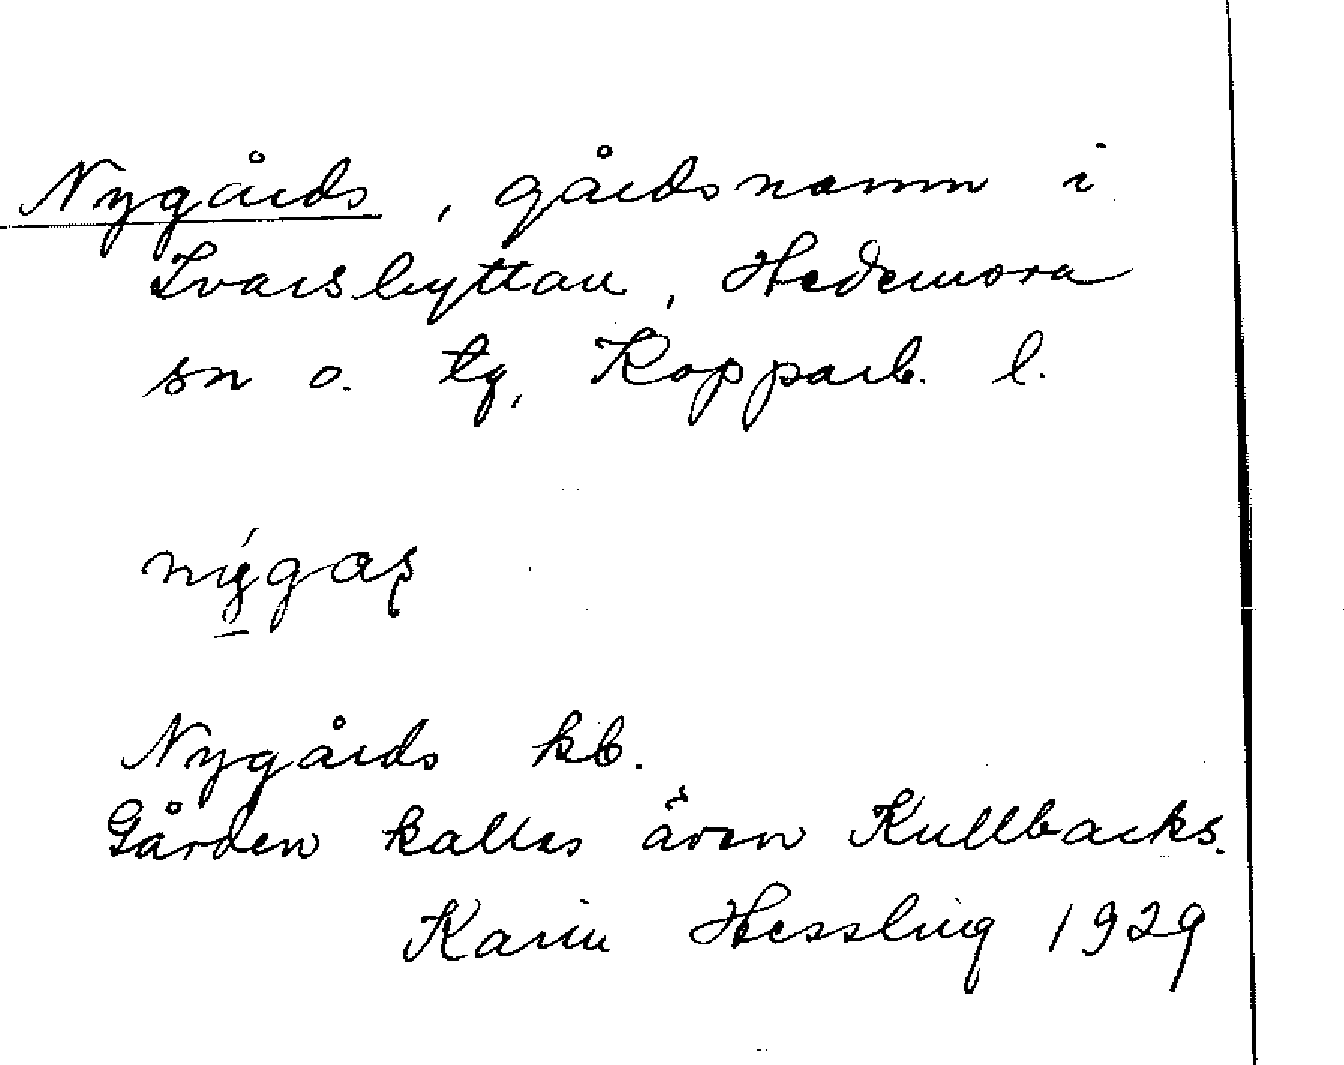 Nygårds, gårdsnamn i
Ivarshyttan, Hedemora
sn o. tg, Kopparb. l.
nýgaʂ
Nygårds kb.
Gården kallas även Kullbacks.
Karin Hessling 1929